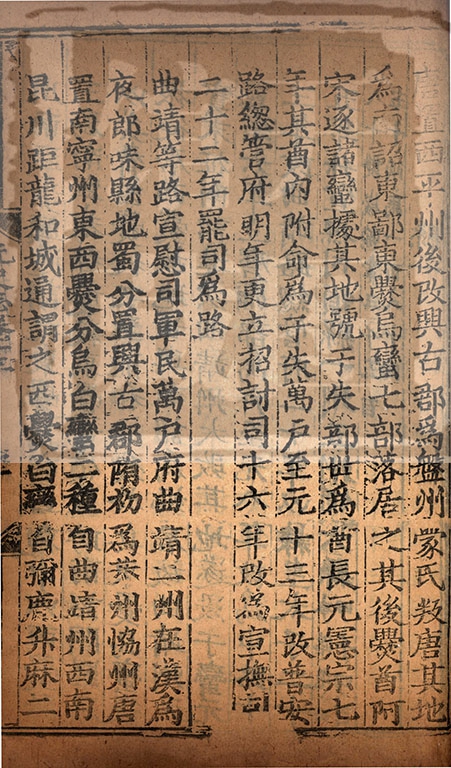 唐置西平州後改興古郡為盤州蒙氏叛唐其地
為南詔東鄙東爨烏蠻七部落居之其後爨酋阿
宋逐諸蠻據其地號于失部世為酋長元憲宗七
年其酋內附命為于失萬戶至元十三年改普安
路總管府明年更立招討司十六年改為宣撫司
二十二年罷司為路
曲靖等路宣慰司軍民萬戶府曲靖二州在漢為
夜郎味縣地蜀分置興古郡隋初為恭州協州唐
置南寧州東西爨分烏白蠻二種自曲靖州西南
昆川距龍和城通謂之西爨白蠻自彌鹿升麻二